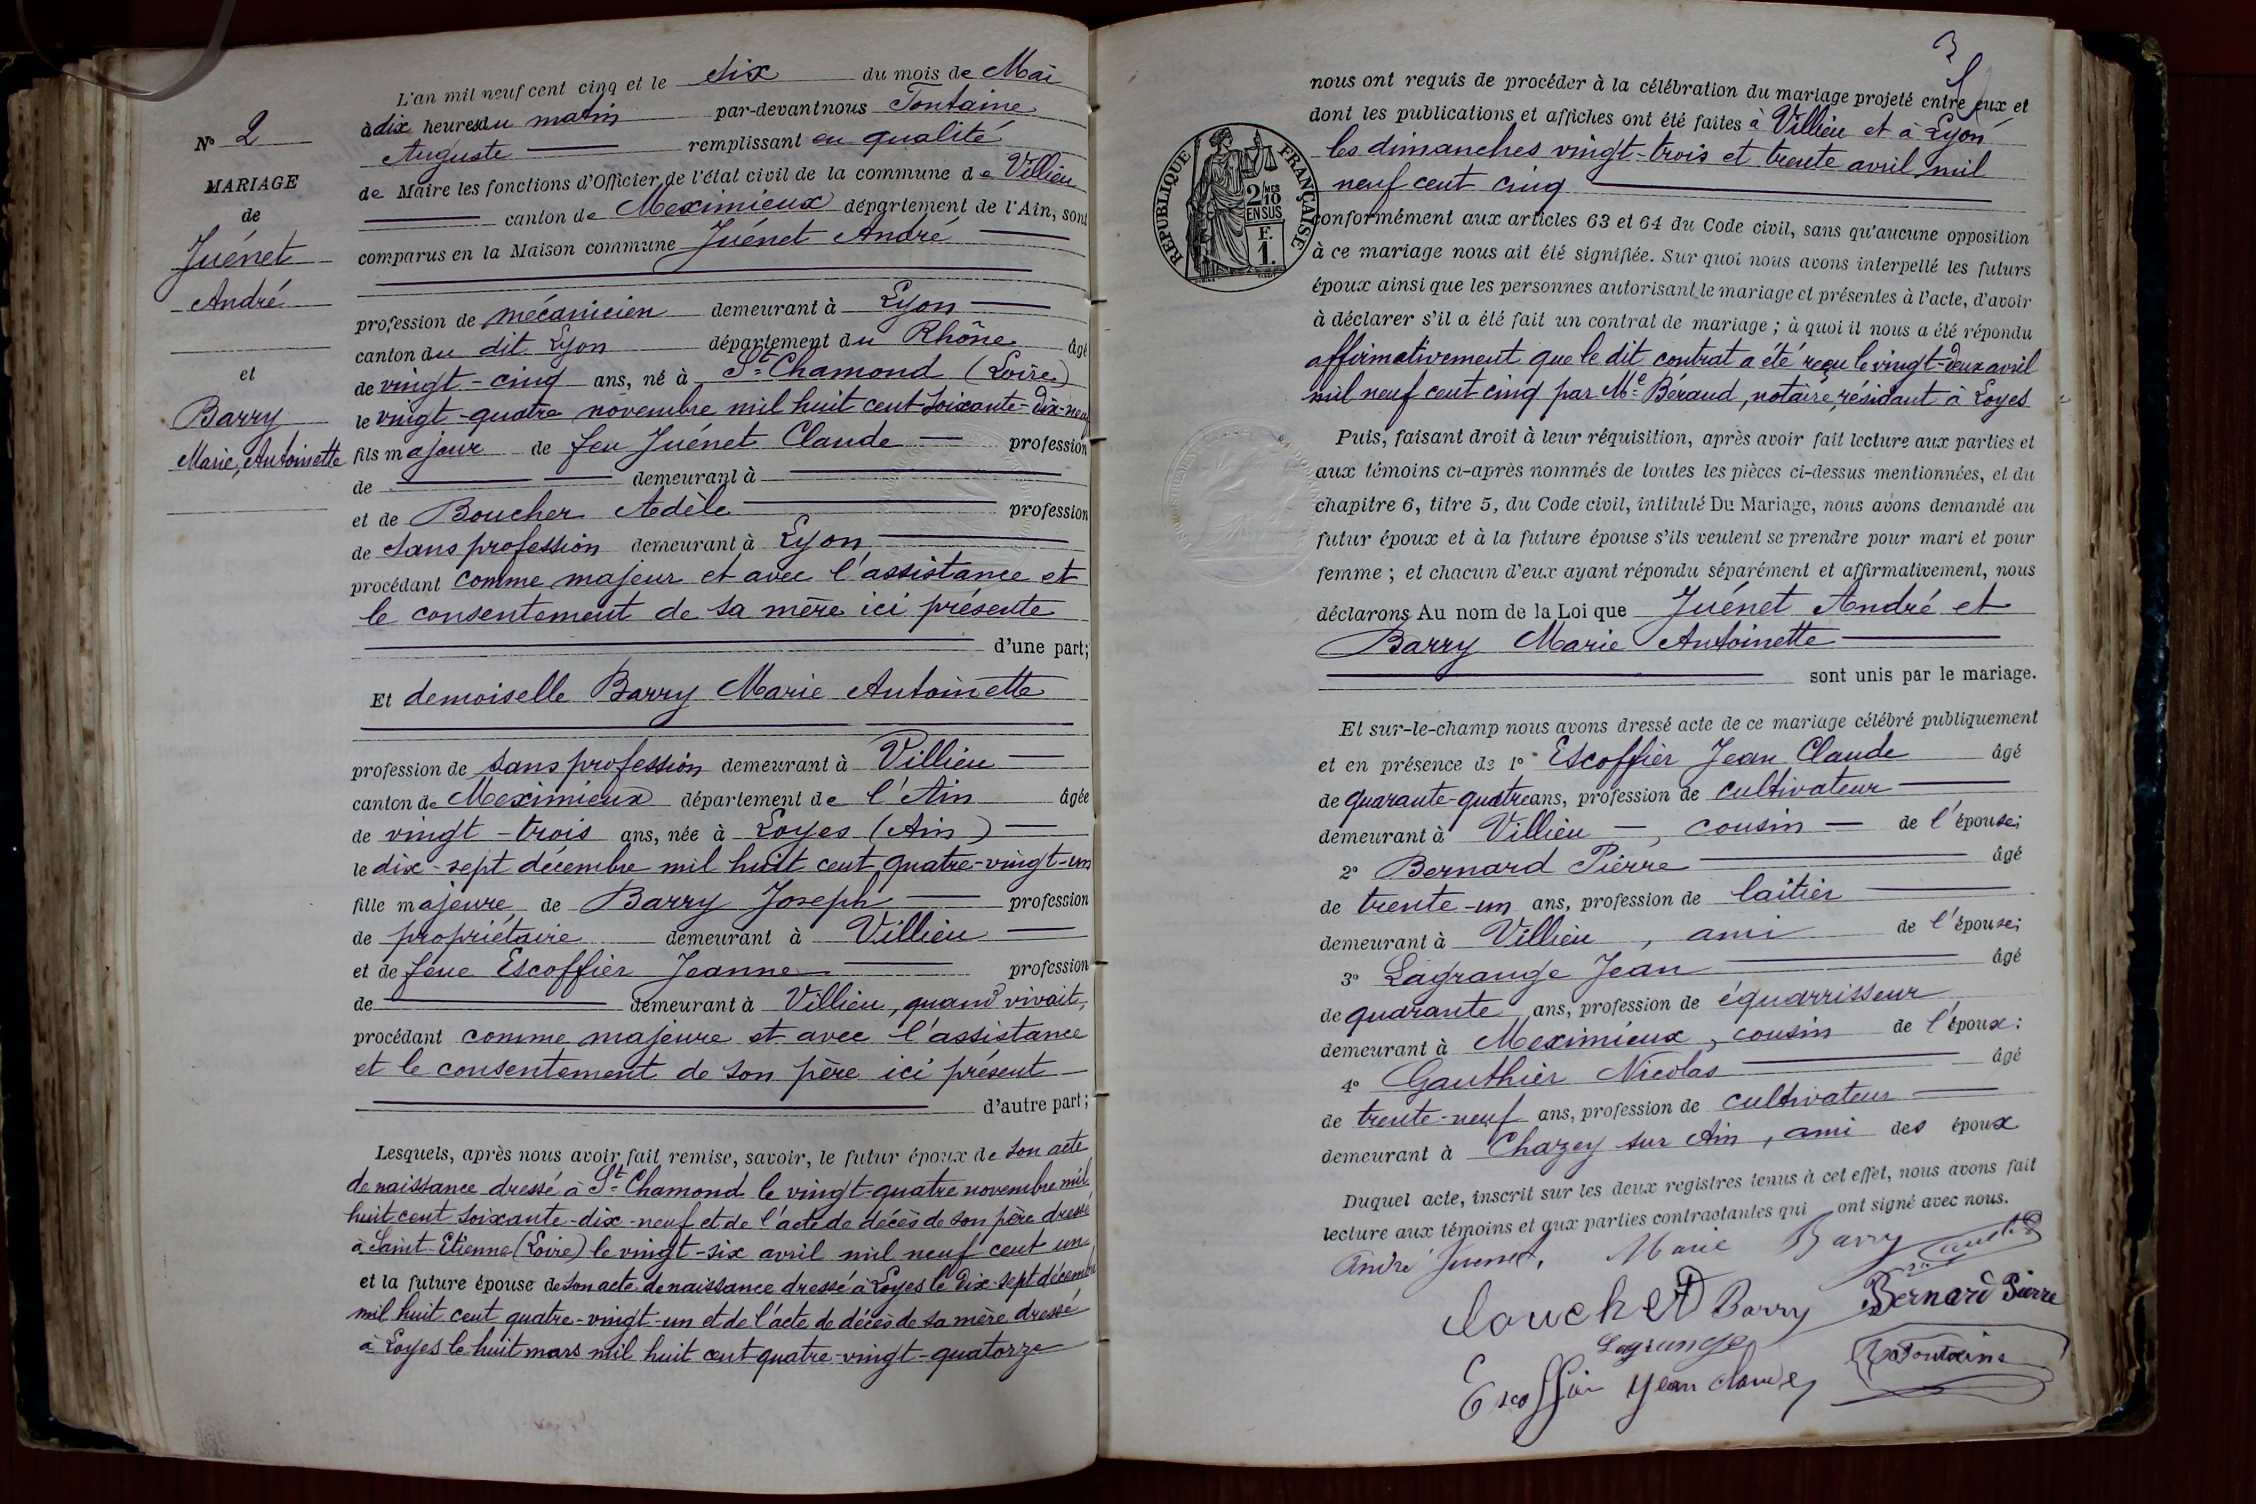 L'an mil neuf cent cinq et le six du mois de Mai
à dix heures du matin par-devant nous Fontaine
Auguste remplissant en qualité
de Maire les fonctions d'Officier de l'état civil de la commune de Villieu
canton de Meximieux département de l'Ain, sont
comparus en la Maison commune Juénet André
profession de mécanicien demeurant à Lyon
canton du dit Lyon département du Rhône âgé
de vingt-cinq ans, né à St Chamond (Loire)
le vingt-quatre novembre mil huit cent soixante-dix-neuf
fils majeur de feu Juénet Claude profession
de demeurant à
et de Boucher Adèle profession
de sans profession demeurant à Lyon
procédant comme majeur et avec l'assistance et
le consentement de sa mère ici présente
d'une part;
Et demoiselle Barry Marie Antoinette
profession de sans profession demeurant à Villieu
canton de Meximieux département de l'Ain âgée
de vingt-trois ans, née à Loyes (Ain)
le dix-sept décembre mil huit cent quatre-vingt-un
fille majeure de Barry Joseph profession
de propriétaire demeurant à Villieu
et de feue Escoffier Jeanne profession
de demeurant à Villieu, quand vivait,
procédant comme majeure et avec l'assistance
et le consentement de son père ici présent
d'autre part;
Lesquels, après nous avoir fait remise, savoir, le futur époux de son acte
de naissance dressé à St Chamond le vingt-quatre novembre mil
huit cent soixante-dix-neuf et de l'acte de décès de son père dressé
à Saint-Etienne (Loire) le vingt-six avril mil neuf cent un
et la future épouse de son acte de naissance dressé à Loyes le dix-sept décembre
mil huit cent quatre-vingt-un et de l'acte de décès de sa mère dressé
à Loyes le huit mars mil huit cent quatre-vingt-quatorze
No 2
MARIAGE
de
Juénet
André
et
Barry
Marie, Antoinette
3
nous ont requis de procéder à la célébration du mariage projeté entre eux et
dont les publications et affiches ont été faites à Villieu et à Lyon
les dimanches vingt-trois et trente avril mil
neuf cent cinq
conformément aux articles 63 et 64 du Code civil, sans qu'aucune opposition
à ce mariage nous ait été signifiée. Sur quoi nous avons interpellé les futurs
époux ainsi que les personnes autorisant le mariage et présentes à l'acte, d'avoir
à déclarer s'il a été fait un contrat de mariage; à quoi il nous a été répondu
affirmativement que le dit contrat a été reçu le vingt-deux avril
mil neuf cent cinq par Me Béraud, notaire, résidant à Loyes
Puis, faisant droit à leur réquisition, après avoir fait lecture aux parties et
aux témoins ci-après nommés de toutes les pièces ci-dessus mentionnées, et du
chapitre 6, titre 5, du Code civil, intitulé Du Mariage, nous avons demandé au
futur époux et à la future épouse s'ils veulent se prendre pour mari et pour
femme; et chacun d'eux ayant répondu séparément et affirmativement, nous
déclarons Au nom de la Loi que Juénet André et
Barry Marie Antoinette
sont unis par le mariage.
Et sur-le-champ nous avons dressé acte de ce mariage célébré publiquement
et en présence de 1o Escoffier Jean Claude âgé
de quarante-quatre ans, profession de cultivateur
demeurant à Villieu, cousin de l'épouse;
2o Bernard Pierre âgé
de trente-un ans, profession de laitier
demeurant à Villieu, ami de l'épouse;
3o Lagrange Jean âgé
de quarante ans, profession de équarrisseur
demeurant à Meximieux, cousin de l'époux;
4o Gauthier Nicolas âgé
de trente-neuf ans, profession de cultivateur
demeurant à Chazey sur Ain, ami des époux
Duquel acte, inscrit sur les deux registres tenus à cet effet, nous avons fait
lecture aux témoins et aux parties contractantes qui ont signé avec nous.
André Juenet. Marie Barry
Barry Bernard Pierre
Lagrange
Escoffier Jean claude Fontaine
RÉPUBLIQUE FRANÇAISE
2/10
MES
EN SUS
F.
1.